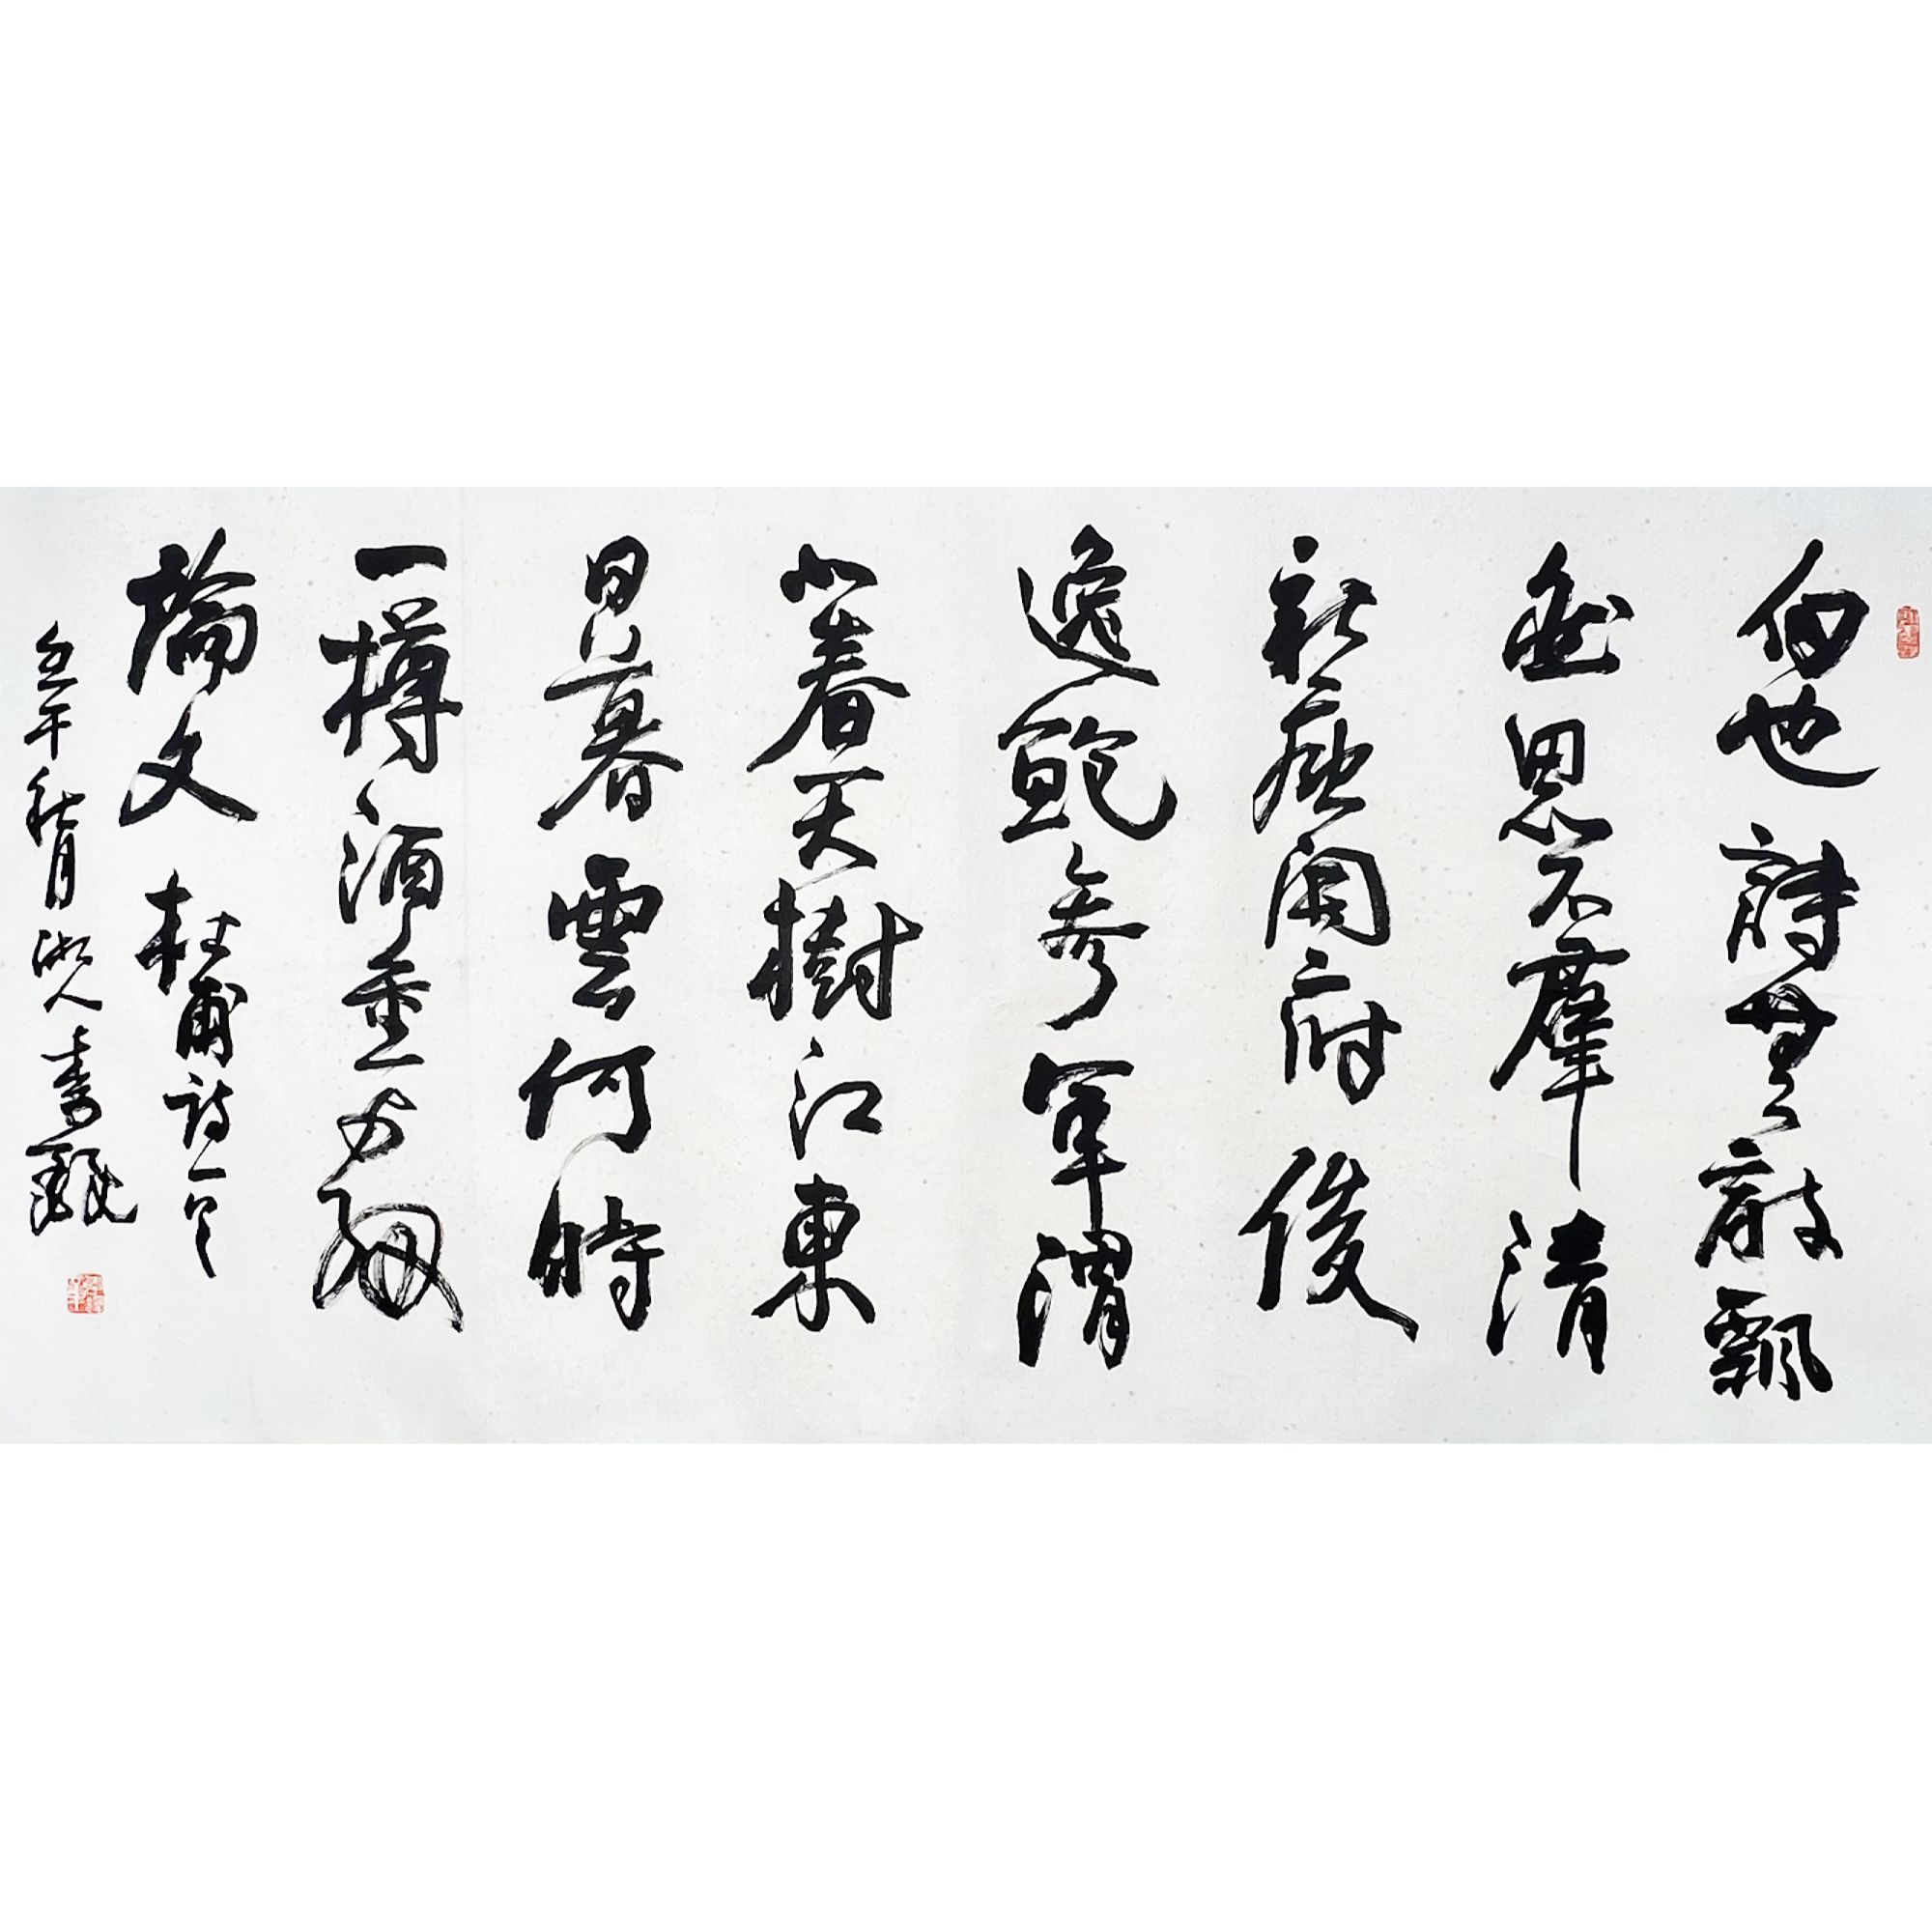 白也詩無敵飄
然思不羣清
新庾開府俊
逸鮑參軍渭
北春天樹江東
日暮雲何時
一樽酒重与細
論文 杜甫詩一首
壬午秋月